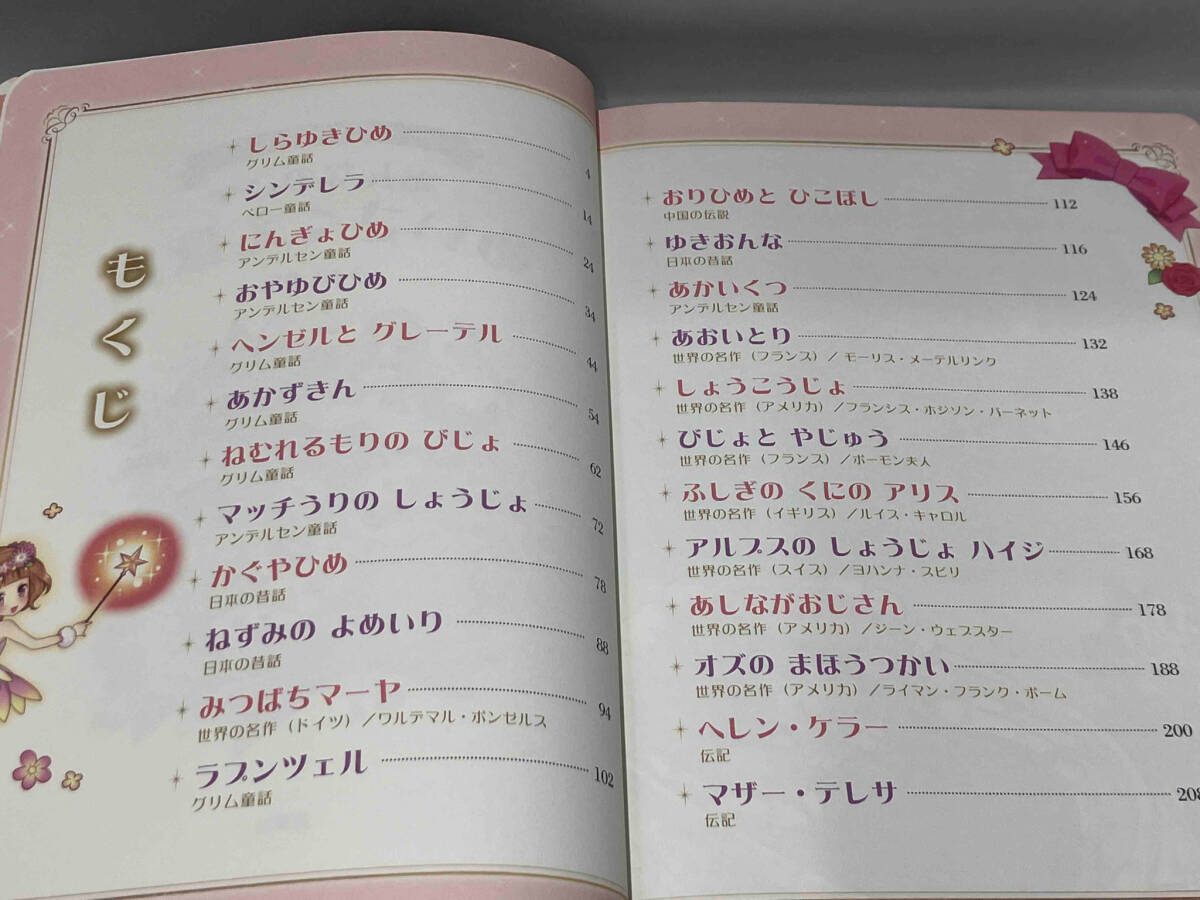 もくじ
しらゆきひめ 4
グリム童話
シンデレラ 14
ペロー童話
にんぎょひめ 24
アンデルセン童話
おやゆびひめ 34
アンデルセン童話
ヘンゼルと グレーテル 44
グリム童話
あかずきん 54
グリム童話
ねむれるもりの びじょ 62
グリム童話
マッチうりの しょうじょ 72
アンデルセン童話
かぐやひめ 78
日本の昔話
ねずみの よめいり 88
日本の昔話
みつばちマーヤ 94
世界の名作（ドイツ）／ワルデマル・ボンゼルス
ラプンツェル 102
グリム童話
おりひめと ひこぼし 112
中国の伝説
ゆきおんな 116
日本の昔話
あかいくつ 124
アンデルセン童話
あおいとり 132
世界の名作（フランス）／モーリス・メーテルリンク
しょうこうじょ 138
世界の名作（アメリカ）／フランシス・ホジソン・バーネット
びじょと やじゅう 146
世界の名作（フランス）／ボーモン夫人
ふしぎの くにの アリス 156
世界の名作（イギリス）／ルイス・キャロル
アルプスの しょうじょ ハイジ 168
世界の名作（スイス）／ヨハンナ・スピリ
あしながおじさん 178
世界の名作（アメリカ）／ジーン・ウェブスター
オズの まほうつかい 188
世界の名作（アメリカ）／ライマン・フランク・ボーム
ヘレン・ケラー 200
伝記
マザー・テレサ 208
伝記